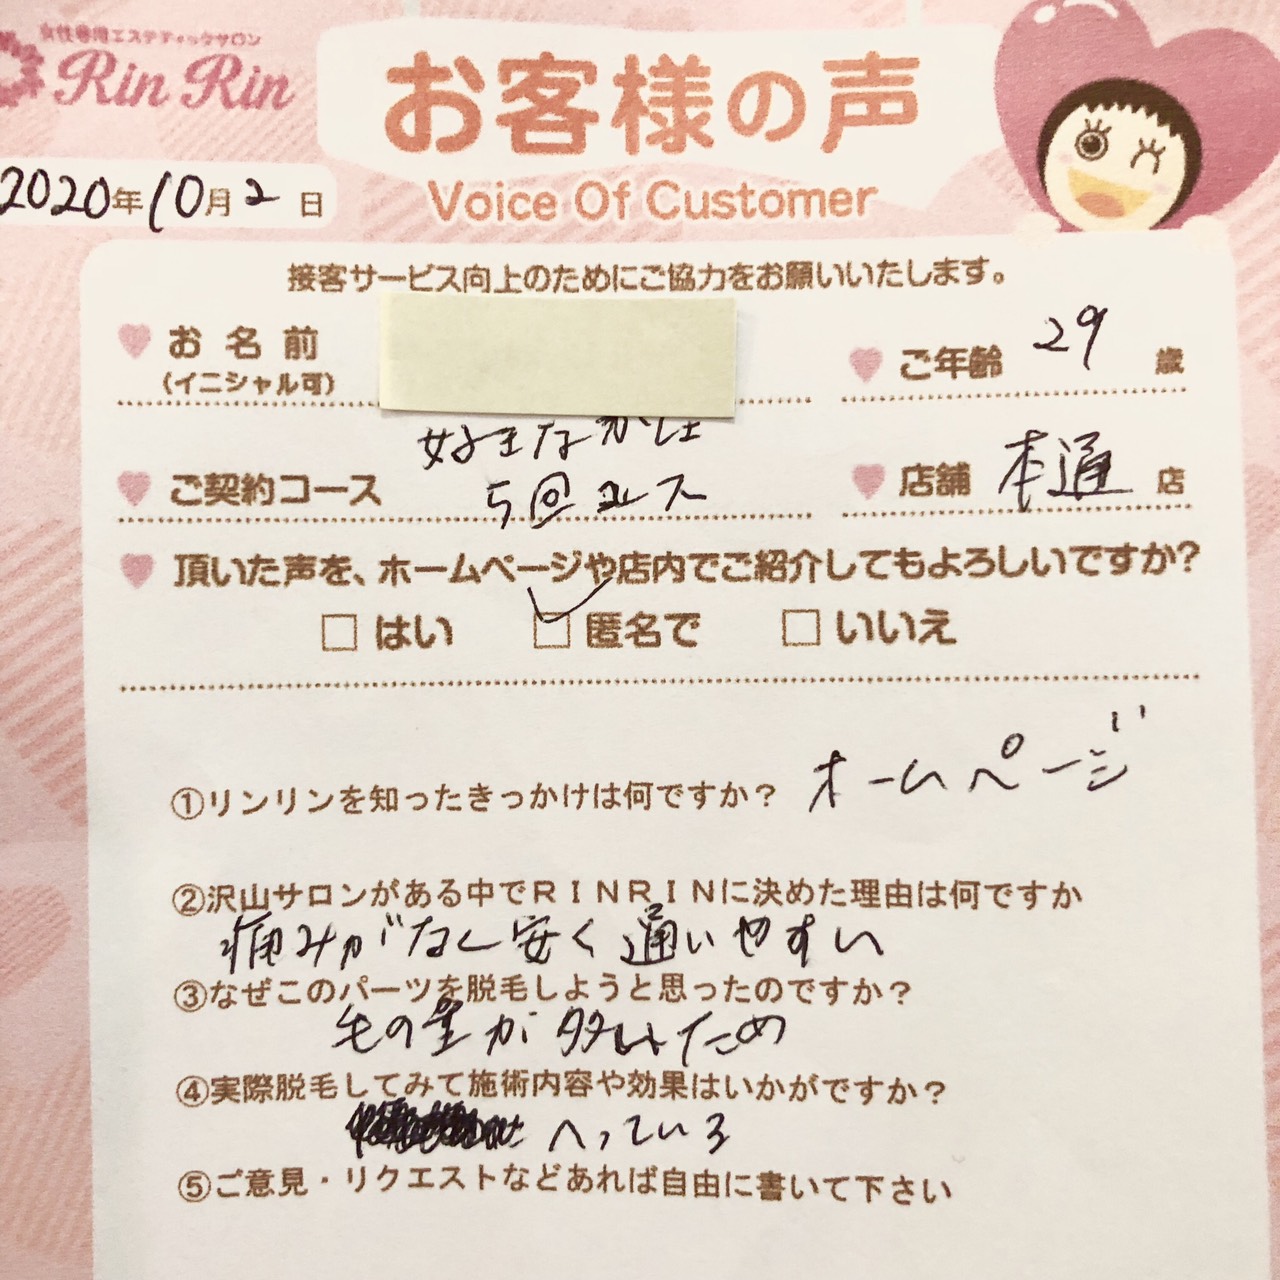 女性専用エステティックサロン
Rin Rin
お客様の声
Voice Of Customer
2020年10月2日
接客サービス向上のためにご協力をお願いいたします。
お名前
(イニシャル可)
ご年齢 29 歳
好きなか所
ご契約コース 5回コース
店舗 本通 店
頂いた声を、ホームページや店内でご紹介してもよろしいですか?
はい 匿名で いいえ
①リンリンを知ったきっかけは何ですか? ホームページ
②沢山サロンがある中でRINRINに決めた理由は何ですか
痛みがなく安く通いやすい
③なぜこのパーツを脱毛しようと思ったのですか?
毛の量が多いため
④実際脱毛してみて施術内容や効果はいかがですか?
へっている
⑤ご意見・リクエストなどあれば自由に書いて下さい